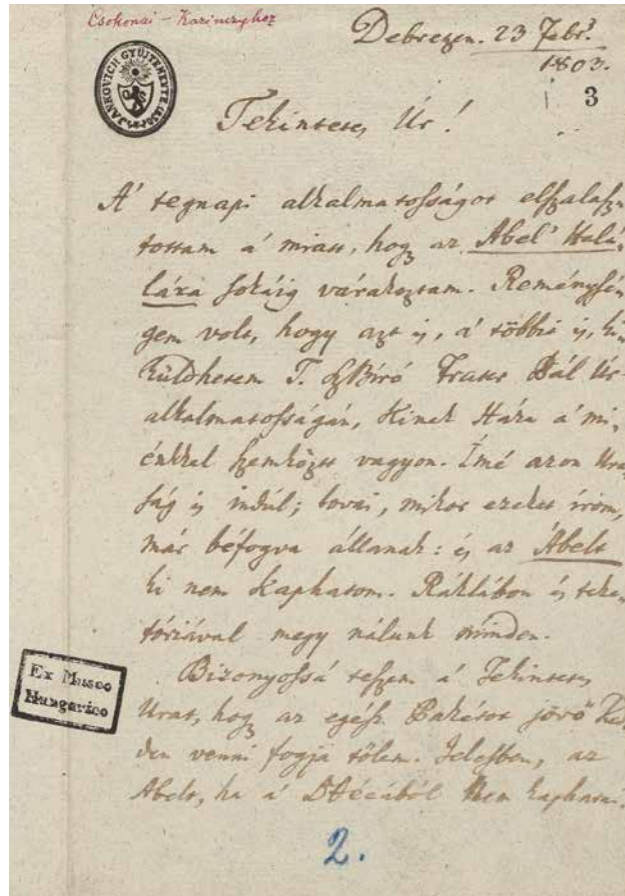 Csokonai – Kazinczyhoz
Debrezen. 23 Febr.
1803.
3
JANKOVICH GYÜJTEMÉNYE
Tekintetes Úr!
A' tegnapi alkalmatosságot elszalasz,
tottam á miatt, hog az Abel' Halá,
lára sokáig várakoztam. Reménysé,
gem volt, hogy azt is, á többit is, ki,
küldhetem T. SzBíró Fráter Pál Úr
alkalmatosságán, Kinek Háza á mi,
énkkel szemközt vagyon. Ímé azon Ura
ság is indúl; lovai, mikor ezeket írom,
már béfogva állanak: és az Ábelt
ki nem kaphatom. Ráklábon és teke,
tóriával megy nálunk minden.
Bizonyossá teszem á Tekintetes
Urat, hog az egész Pakétot jövő Ked
den venni fogja tőlem. Jelesben, az
Abelt, ha á Bból nem kaphatni
Ex Museo
Hungarico
2.